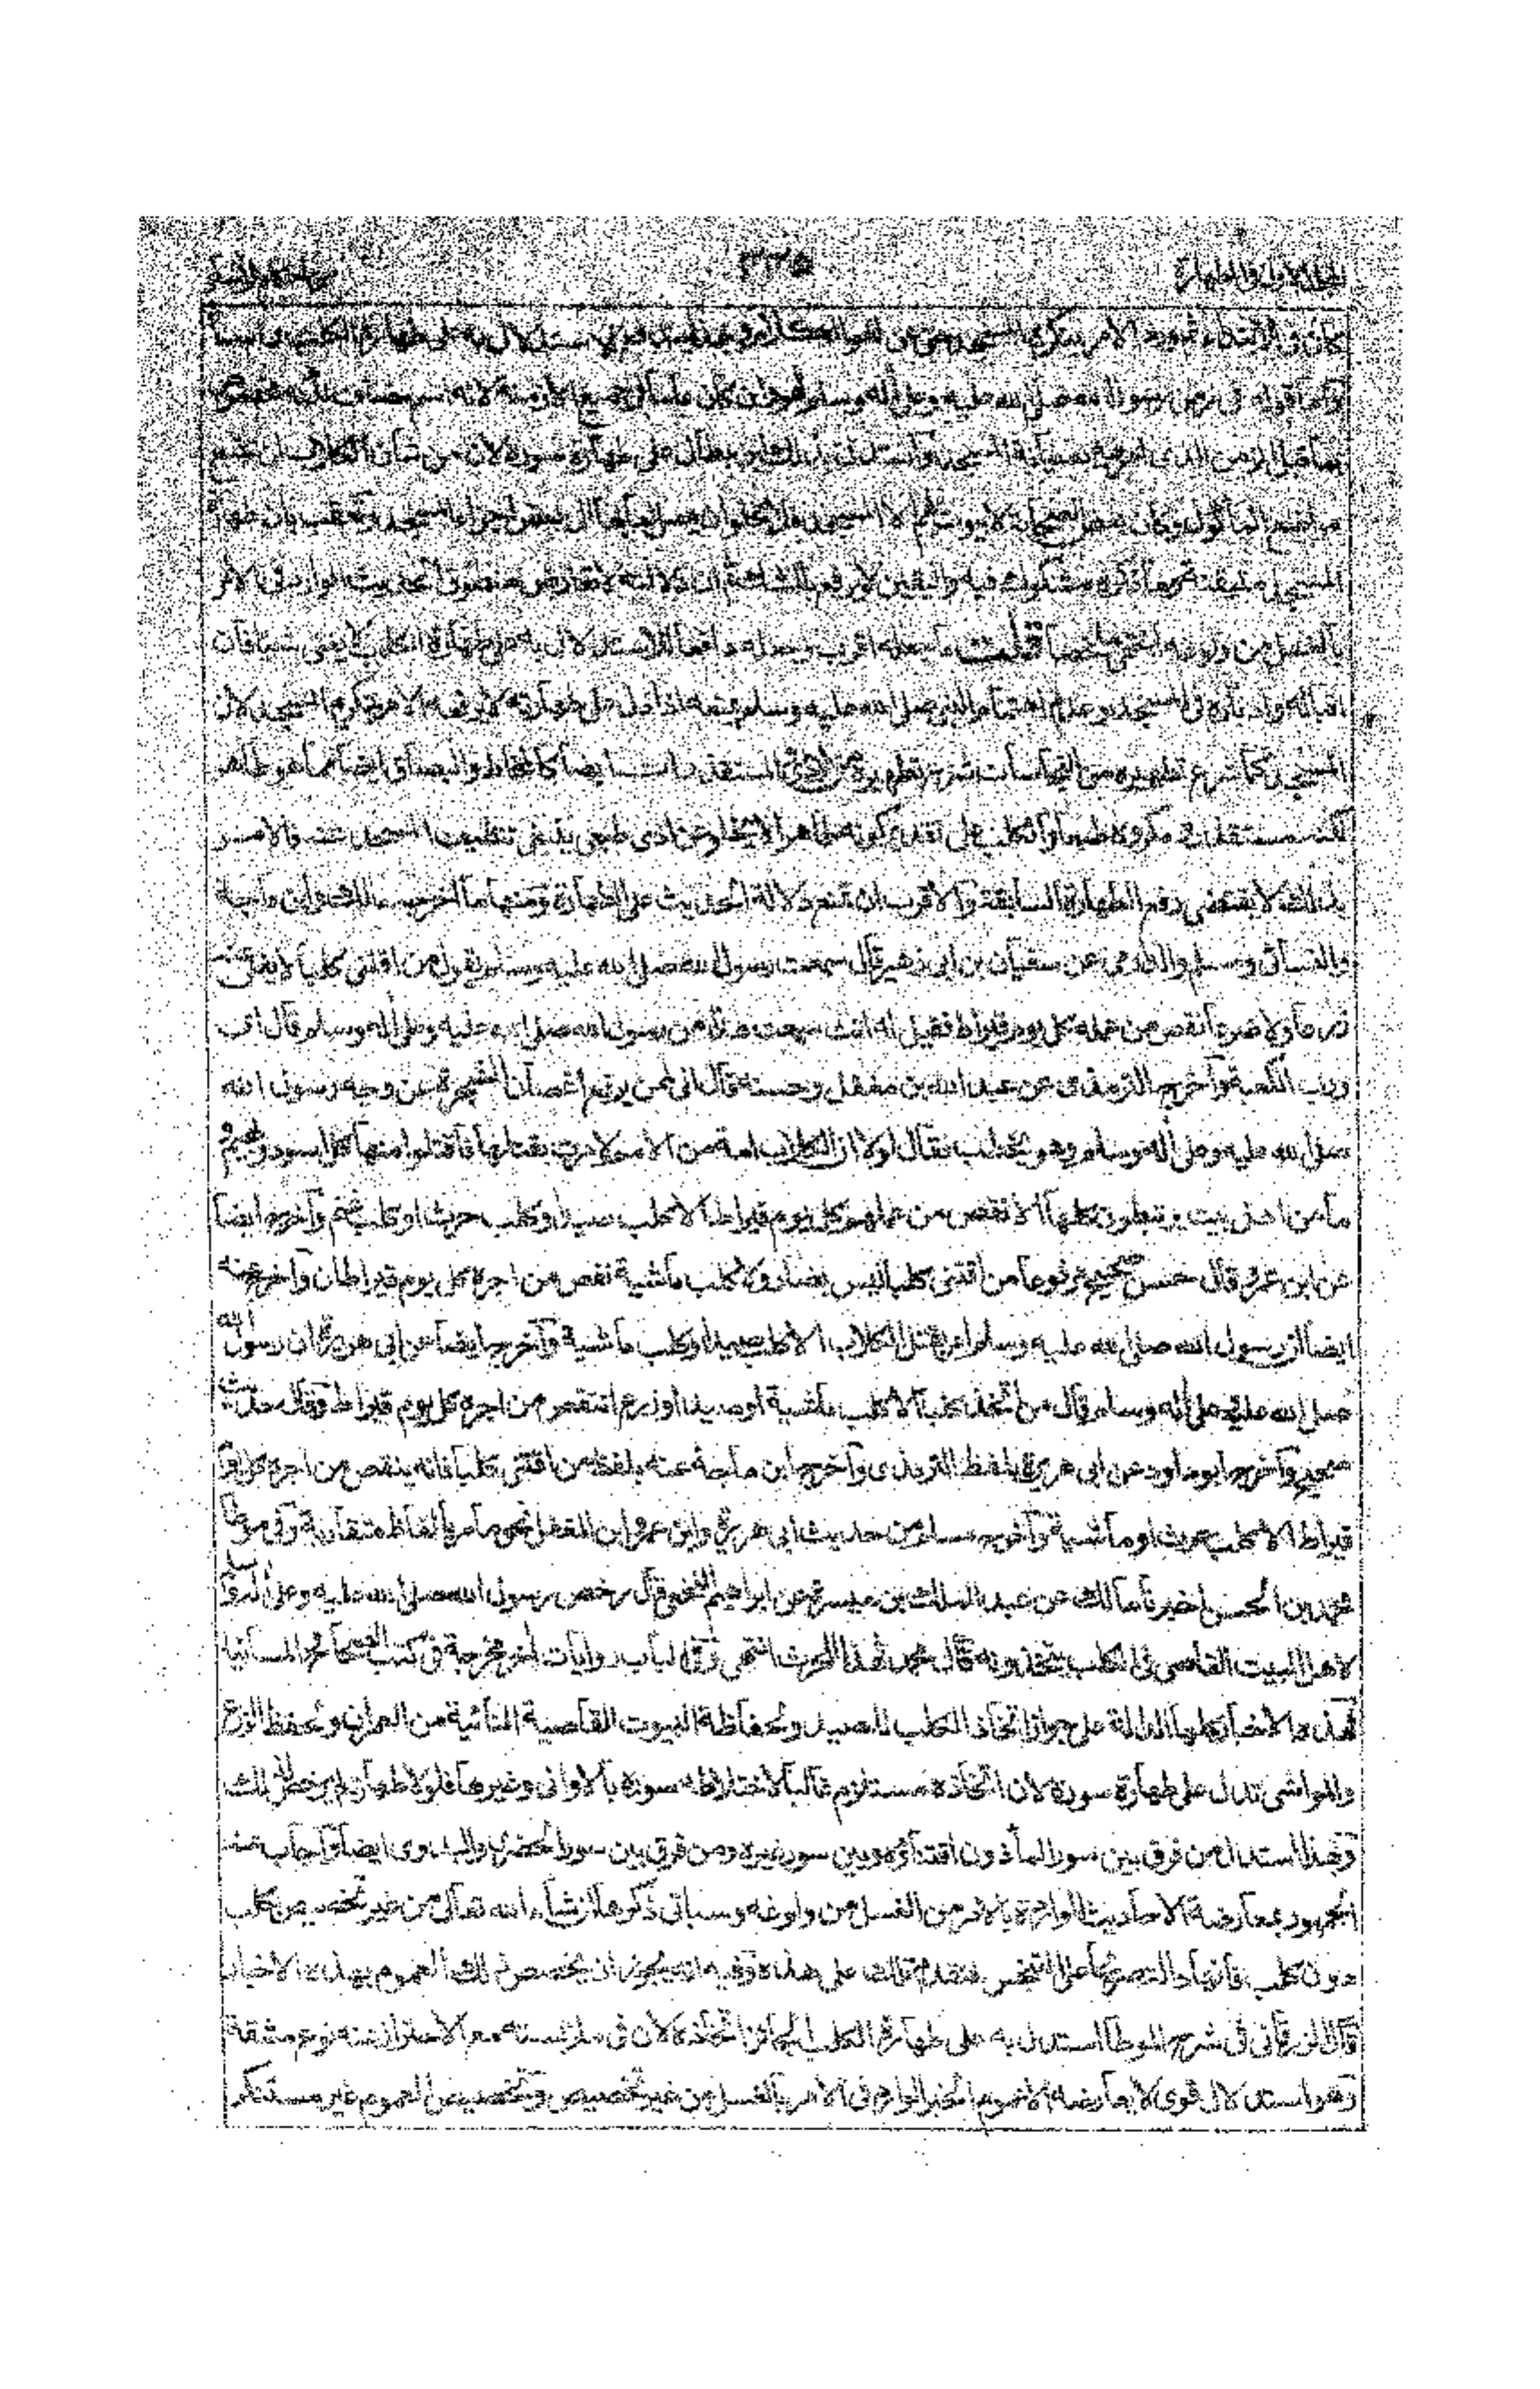 ٣٣٥
كان في الابتداء ثم ورد الامر بتكريم المسجد حتى عن لغو الكلام وبهذا يندفع الاستدلال به على طهارة الكلب
واما قوله في زمن رسول الله صلى الله عليه وعلى اله وسلم فهو وان كان عاما في جميع الازمنة لانه اسم مضاف لكنه مخصوص
بما قبل الزمن الذي امر فيه بصيانة المسجد واستدل ابن بطال على طهارة سوره لان من شان الكلاب ان تتبع
مواضع الماكول وكان بعض الصحابة لا بيوت لهم الا المسجد فلا يخلو ان يصل لعابها الى بعض اجزاء المسجد وتعقب بان طهارة
المسجد متيقنة وما ذكره مشكوك فيه واليقين لا يرفع بالشك ثم ان دلالته لا تعارض منطوق الحديث الوارد في الامر
بالغسل من ولوغه انتهى ملخصا قلت ما جعله اقرب وجعله دافعا للاستدلال به على طهارة الكلب لا يغني شيئا فان
اقباله وادباره في المسجد وعدم اهتمام النبي صلى الله عليه وسلم بمنعه اذا دل على طهارته لا يرفعه الامر بتكريم المسجد لان
المسجد كما شرع تطهيره من النجاسات شرع تطهيره عن المستقذرات ايضا كالمخاط والبصاق ايضا مما هو طاهر
لكنه مستقذر مكروه طبعا والكلب على تقدير كونه طاهرا لا يخلو عن اذى طبعي ينبغي تنظيف المسجد عنه والامر
بذلك لا يقتضي رفع الطهارة السابقة والاقرب ان تمنع دلالة الحديث على الطهارة ومنها ما اخرجه مالك وابن ماجة
والنسائي ومسلم والدارمي عن سفيان بن ابي زهير قال سمعت رسول الله صلى الله عليه وسلم يقول من اقتنى كلبا لا يغني عنه
زرعا ولا ضرعا نقص من عمله كل يوم قيراط فقيل له انت سمعت هذا من رسول الله صلى الله عليه وعلى اله وسلم قال اي
ورب الكعبة واخرج الترمذي عن عبد الله بن مغفل وحسنه قال اني لمن يرفع اغصان الشجرة عن وجه رسول الله
صلى الله عليه وعلى اله وسلم وهو يخطب فقال لولا ان الكلاب امة من الامم لامرت بقتلها فاقتلوا منها كل اسود بهيم
ما من اهل بيت يرتبطون كلبا الا نقص من عملهم كل يوم قيراط الا كلب صيد او كلب حرث او كلب غنم واخرج ايضا
عن ابن عمر وقال حسن صحيح مرفوعا من اقتنى كلبا ليس بضار ولا كلب ماشية نقص من اجره كل يوم قيراطان واخرج عنه
ايضا ان رسول الله صلى الله عليه وسلم امر بقتل الكلاب الا كلب صيد او كلب ماشية واخرج ايضا عن ابي هريرة ان رسول الله
صلى الله عليه وعلى اله وسلم قال من اتخذ كلبا الا كلب ماشية او صيد او زرع انتقص من اجره كل يوم قيراط وقال حديث
صحيح واخرج ابو داود عن ابي هريرة بلفظ الترمذي واخرج ابن ماجة عنه بلفظ من اقتنى كلبا فانه ينقص من اجره كل يوم
قيراط الا كلب حرث او ماشية واخرج مسلم من حديث ابي هريرة وابن عمر وابن المغفل نحو ما مر بالفاظ متقاربة وفي موطا
محمد بن الحسن اخبرنا مالك عن عبد الملك بن ميسرة عن ابراهيم النخعي قال رخص رسول الله صلى الله عليه وعلى اله وسلم
لاهل البيت القاصي في الكلب يتخذونه قال محمد فهذا للحرث انتهى وفي الباب روايات اخر مخرجة في كتب الصحاح والمسانيد
فهذه الاخبار كلها الدالة على جواز اتخاذ الكلب للصيد ولمحافظة البيوت القاصية النائية من العمران ولحفظ الزرع
والمواشي تدل على طهارة سوره لان اتخاذه مستلزم غالبا لاختلاط سوره بالاواني وغيرها فلولا طهارته لم يرخص بذلك
وبهذا استدل من فرق بين سور الماذون اقتناؤه وبين سور غيره ومن فرق بين سور الحضري والبدوي ايضا واجاب عنه
الجمهور بمعارضة الاحاديث الواردة بالامر من الغسل من ولوغه وسياتي ذكرها ان شاء الله تعالى من غير تخصيص كلب
دون كلب فانها دالة بعمومها على التنجس فتقدم تلك على هذه وفيه انه يجوز ان يخصص ذلك العموم بهذه الاخبار
وقال الزرقاني في شرح الموطا استدل به على طهارة الكلب الجائز اتخاذه لان في ملابسته مع الاحتراز عنه نوع مشقة
وهو استدلال قوي لا يعارضه الا عموم الخبر الوارد في الامر بالغسل من غير تخصيص وتخصيص العموم غير مستنكر